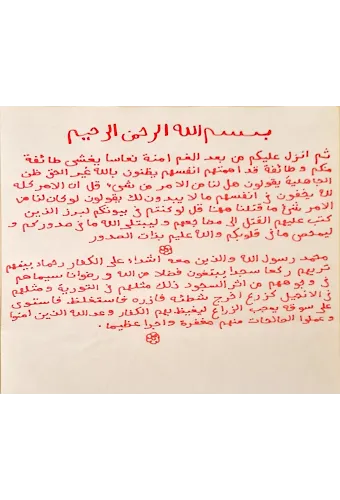 بسم الله الرحمن الرحيم
ثم انزل عليكم من بعد الغم امنة نعاسا يغشى طائفة
منكم وطائفة قد اهمتهم انفسهم يظنون بالله غير الحق ظن
الجاهلية يقولون هل لنا من الامر من شيء، قل ان الامر كله
لله يخفون في انفسهم ما لا يبدون لك يقولون لو كان لنا من
الامر شيء ما قتلنا ههنا قل لو كنتم في بيوتكم لبرز الذين
كتب عليهم القتل الى مضاجعهم وليبتلي الله ما في صدوركم و
ليمحص ما في قلوبكم والله عليم بذات الصدور
محمد رسول الله والذين معه اشداء على الكفار رحماء بينهم
تريهم ركعا سجدا يبتغون فضلا من الله و رضوانا سيماهم
في وجوههم من اثر السجود ذلك مثلهم في التورية ومثلهم
في الانجيل كزرع اخرج شطئه فازره فاستغلظ فاستوى
على سوقه يعجب الزراع ليغيظ بهم الكفار وعد الله الذين امنوا
وعملوا الصالحات منهم مغفرة واجرا عظيما.